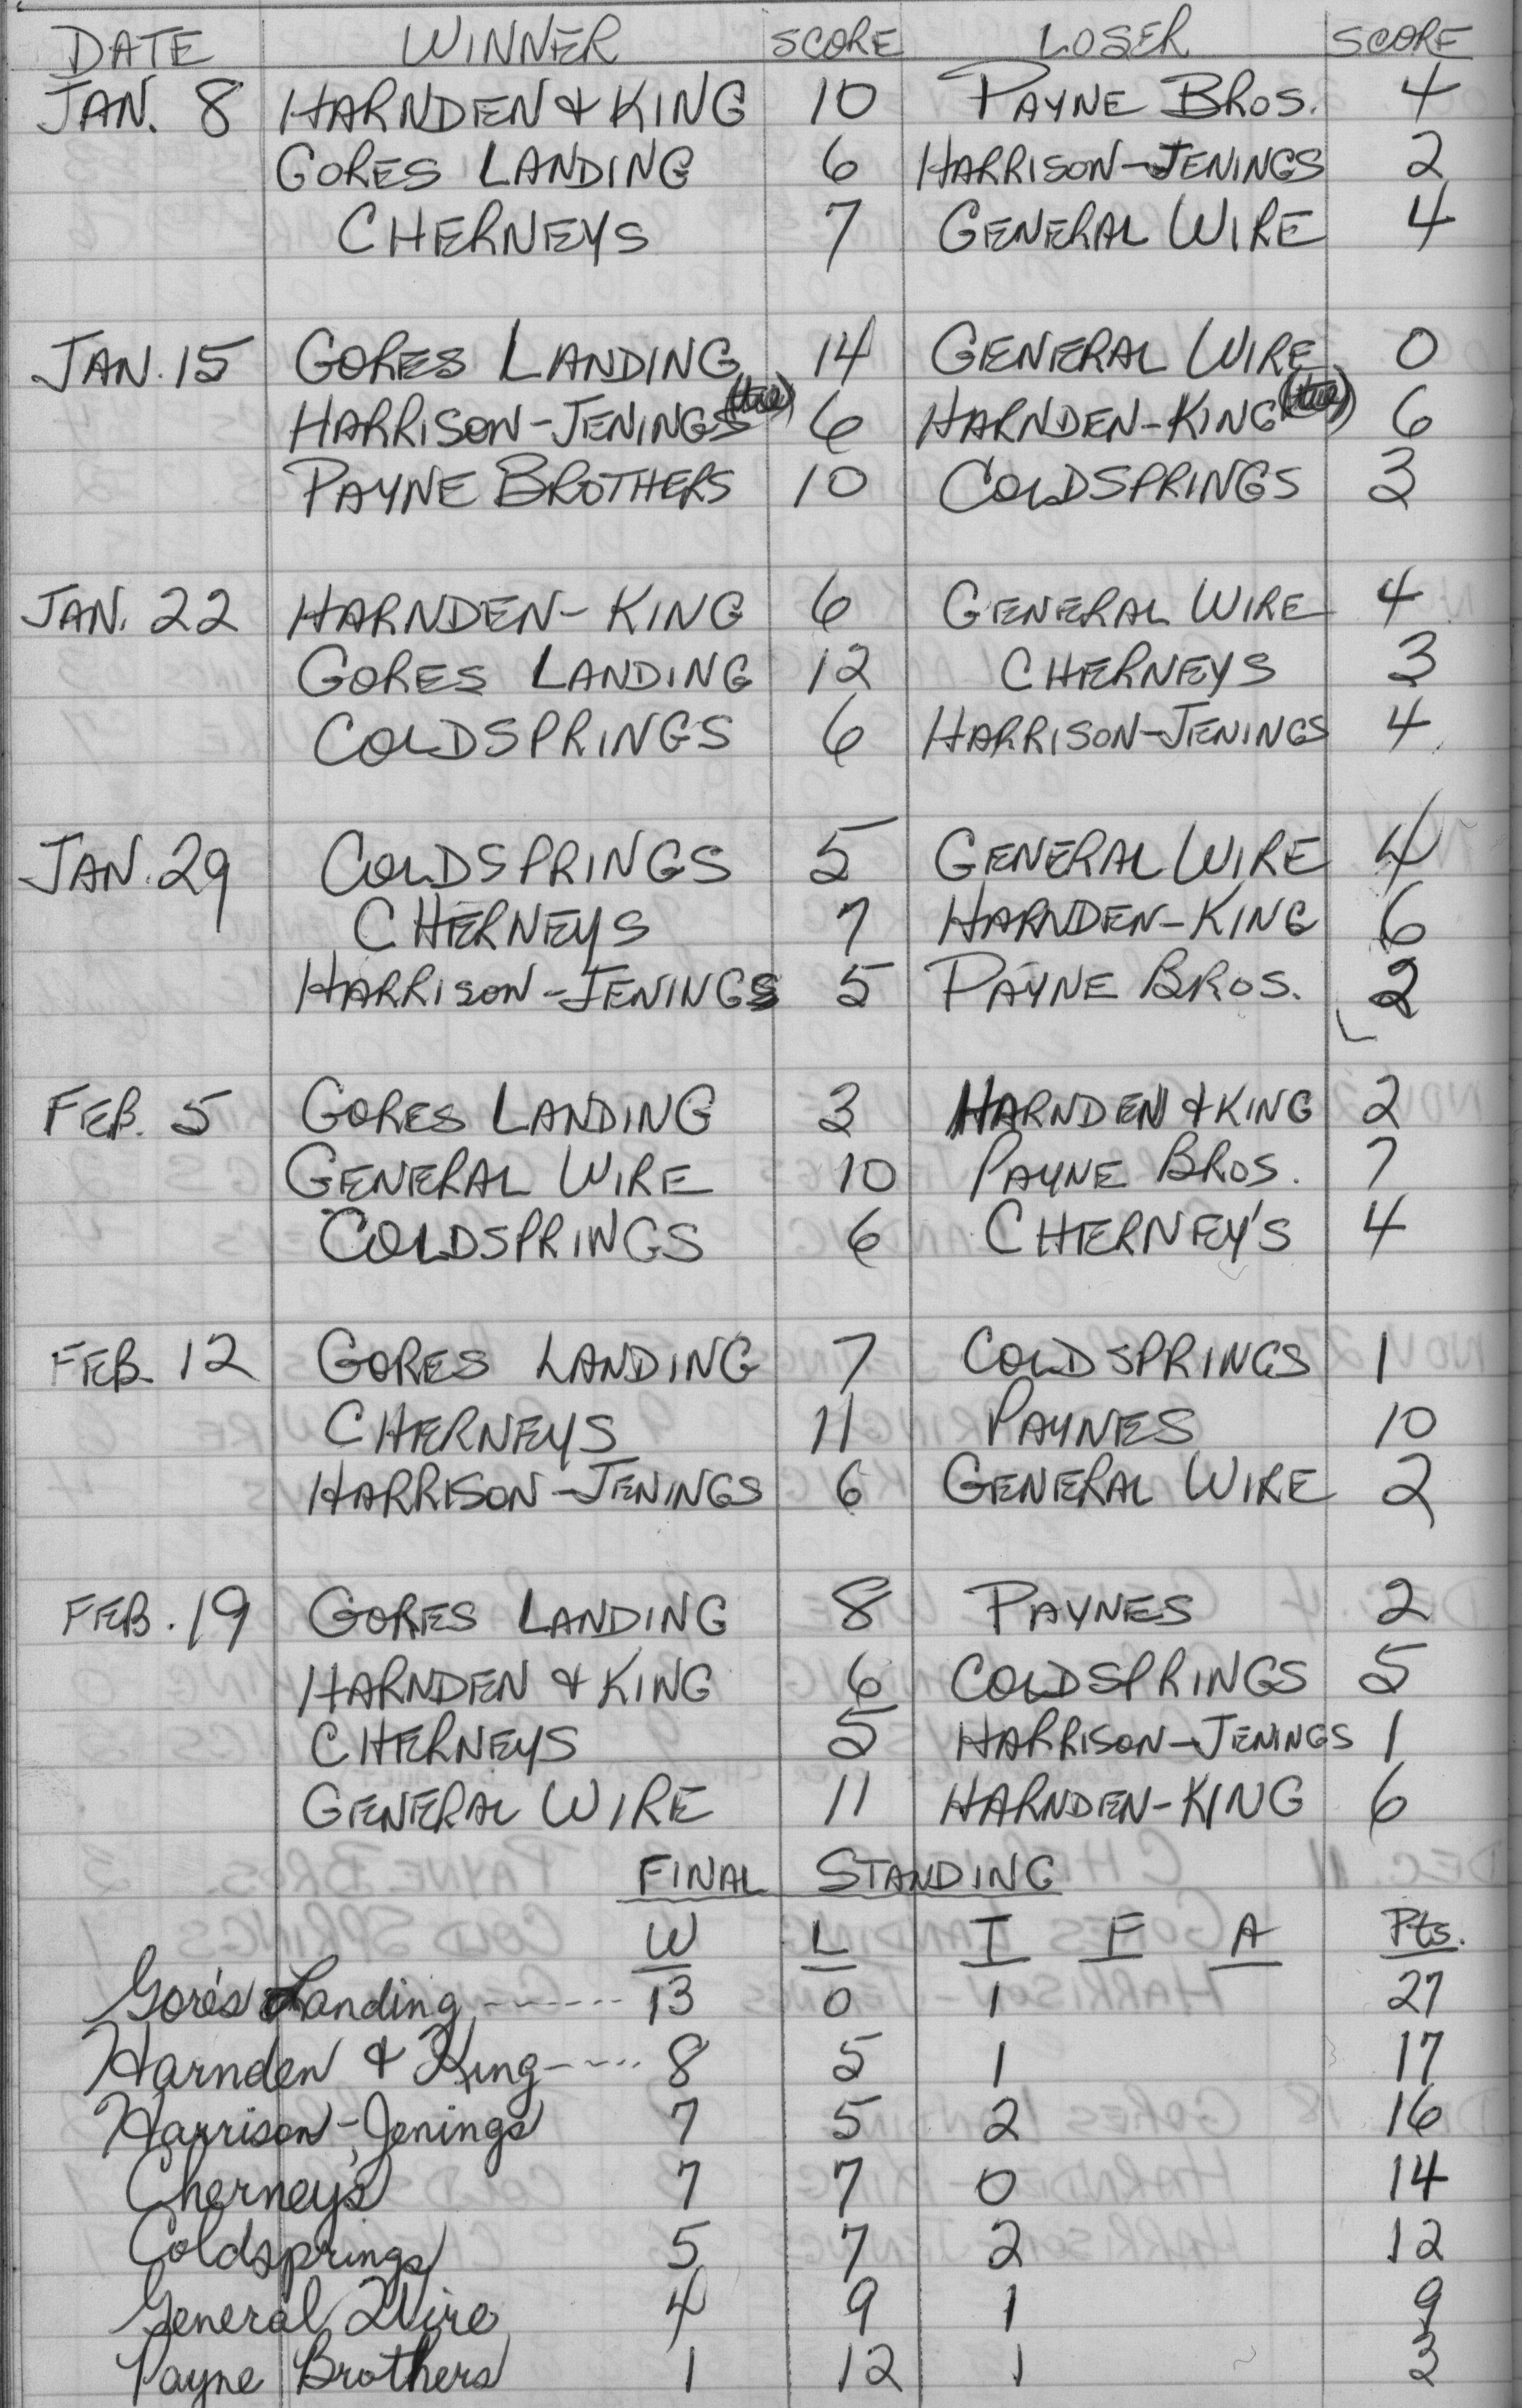 DATE WINNER SCORE LOSER SCORE
JAN. 8 HARNDEN & KING 10 PAYNE BROS. 4
GORES LANDING 6 HARRISON-JENINGS 2
CHERNEYS 7 GENERAL WIRE 4
JAN. 15 GORES LANDING 14 GENERAL WIRE 0
HARRISON-JENINGS (tie) 6 HARNDEN-KING (tie) 6
PAYNE BROTHERS 10 COLDSPRINGS 3
JAN. 22 HARNDEN-KING 6 GENERAL WIRE 4
GORES LANDING 12 CHERNEYS 3
COLDSPRINGS 6 HARRISON-JENINGS 4
JAN. 29 COLDSPRINGS 5 GENERAL WIRE 4
CHERNEYS 7 HARNDEN-KING 6
HARRISON-JENINGS 5 PAYNE BROS. 2
FEB. 5 GORES LANDING 3 HARNDEN & KING 2
GENERAL WIRE 10 PAYNE BROS. 7
COLDSPRINGS 6 CHERNEY'S 4
FEB. 12 GORES LANDING 7 COLDSPRINGS 1
CHERNEYS 11 PAYNES 10
HARRISON-JENINGS 6 GENERAL WIRE 2
FEB. 19 GORES LANDING 8 PAYNES 2
HARNDEN & KING 6 COLDSPRINGS 5
CHERNEYS 5 HARRISON-JENINGS 1
GENERAL WIRE 11 HARNDEN-KING 6
FINAL STANDING
W L T F A Pts.
Gore's Landing ------ 13 0 1 27
Harnden & King ----- 8 5 1 17
Harrison-Jenings 7 5 2 16
Cherney's 7 7 0 14
Coldsprings 5 7 2 12
General Wire 4 9 1 9
Payne Brothers 1 12 1 3